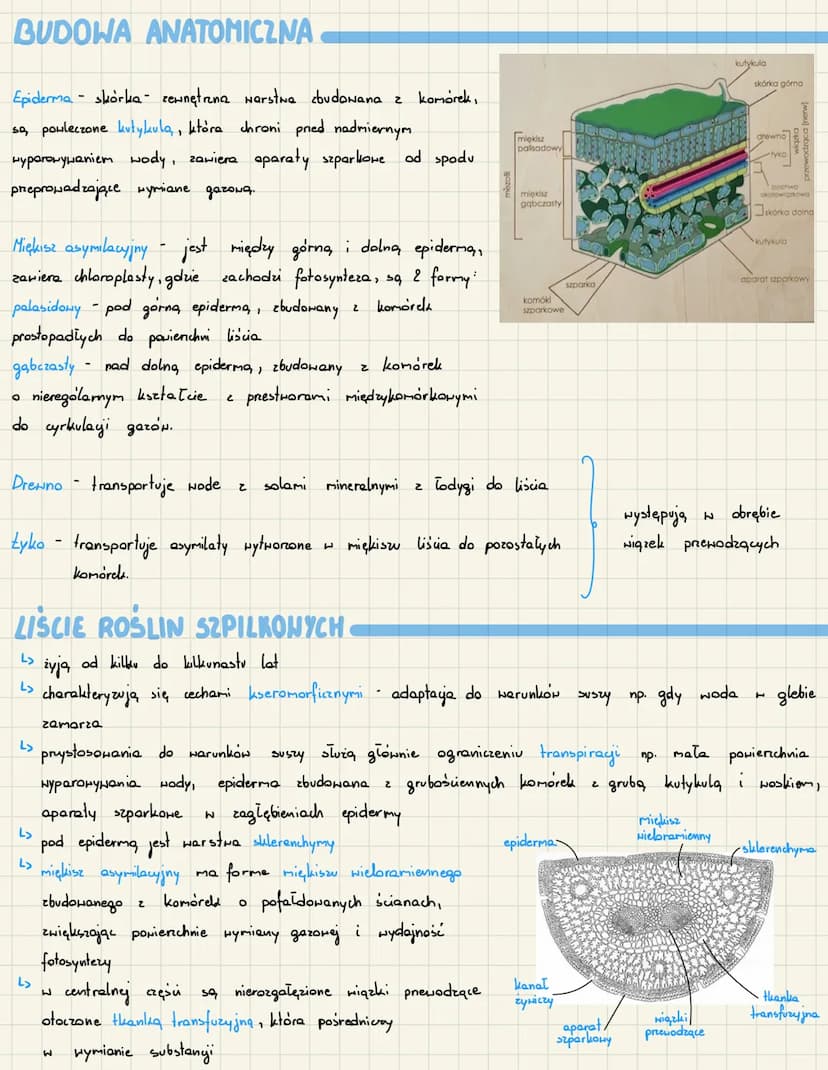 BUDOWA ANATOMICZNA
Epiderma - skórka - zewnętrzna warstwa zbudowana z komórek,
są powleczone kutykulą, która chroni przed nadmiernym
wyparowywaniem wody, zawiera aparaty szparkowe od spodu
przeprowadzające wymianę gazową.
Miękisz asymilacyjny - jest między górną i dolną epidermą,
zawiera chloroplasty, gdzie zachodzi fotosynteza, są 2 formy:
palasidowy - pod górną epidermą, zbudowany z komórek
prostopadłych do powierzchni liścia
gąbczasty - nad dolną epidermą, zbudowany z komórek
o nierególarnym kształcie z przestworami międzykomórkowymi
do cyrkulacji gazów.
kutykula
skórka górna
miękisz
palisadowy
drewno
łyko
wiązka
przewodząca (nerw)
pochwa
okołowiązkowa
mezofil
miękisz
gąbczasty
skórka dolna
kutykula
aparat szparkowy
szparka
komórki
szparkowe
Drewno - transportuje wodę z solami mineralnymi z łodygi do liścia
Łyko - transportuje asymilaty wytworzone w miękiszu liścia do pozostałych
komórek.
występują w obrębie
wiązek przewodzących
LIŚCIE ROŚLIN SZPILKOWYCH
↳ żyją od kilku do kilkunastu lat
↳ charakteryzują się cechami kseromorficznymi - adaptacja do warunków suszy np. gdy woda w glebie
zamarza
↳ przystosowania do warunków suszy służą głównie ograniczeniu transpiracji np. mała powierzchnia
wyparowywania wody, epiderma zbudowana z grubościennych komórek z grubą kutykulą i woskiem,
aparaty szparkowe w zagłębieniach epidermy
↳ pod epidermą jest warstwa sklerenchymy
↳ miękisz asymilacyjny ma formę miękiszu wieloramiennego
zbudowanego z komórek o pofałdowanych ścianach,
zwiększając powierzchnie wymiany gazowej i wydajność
fotosyntezy
↳ w centralnej części są nierozgałęzione wiązki przewodzące
otoczone tkanką transfuzyjną, która pośredniczy
w wymianie substancji
epiderma
miękisz
wieloramienny
sklerenchyma
kanał
żywiczy
aparat
szparkowy
wiązki
przewodzące
tkanka
transfuzyjna